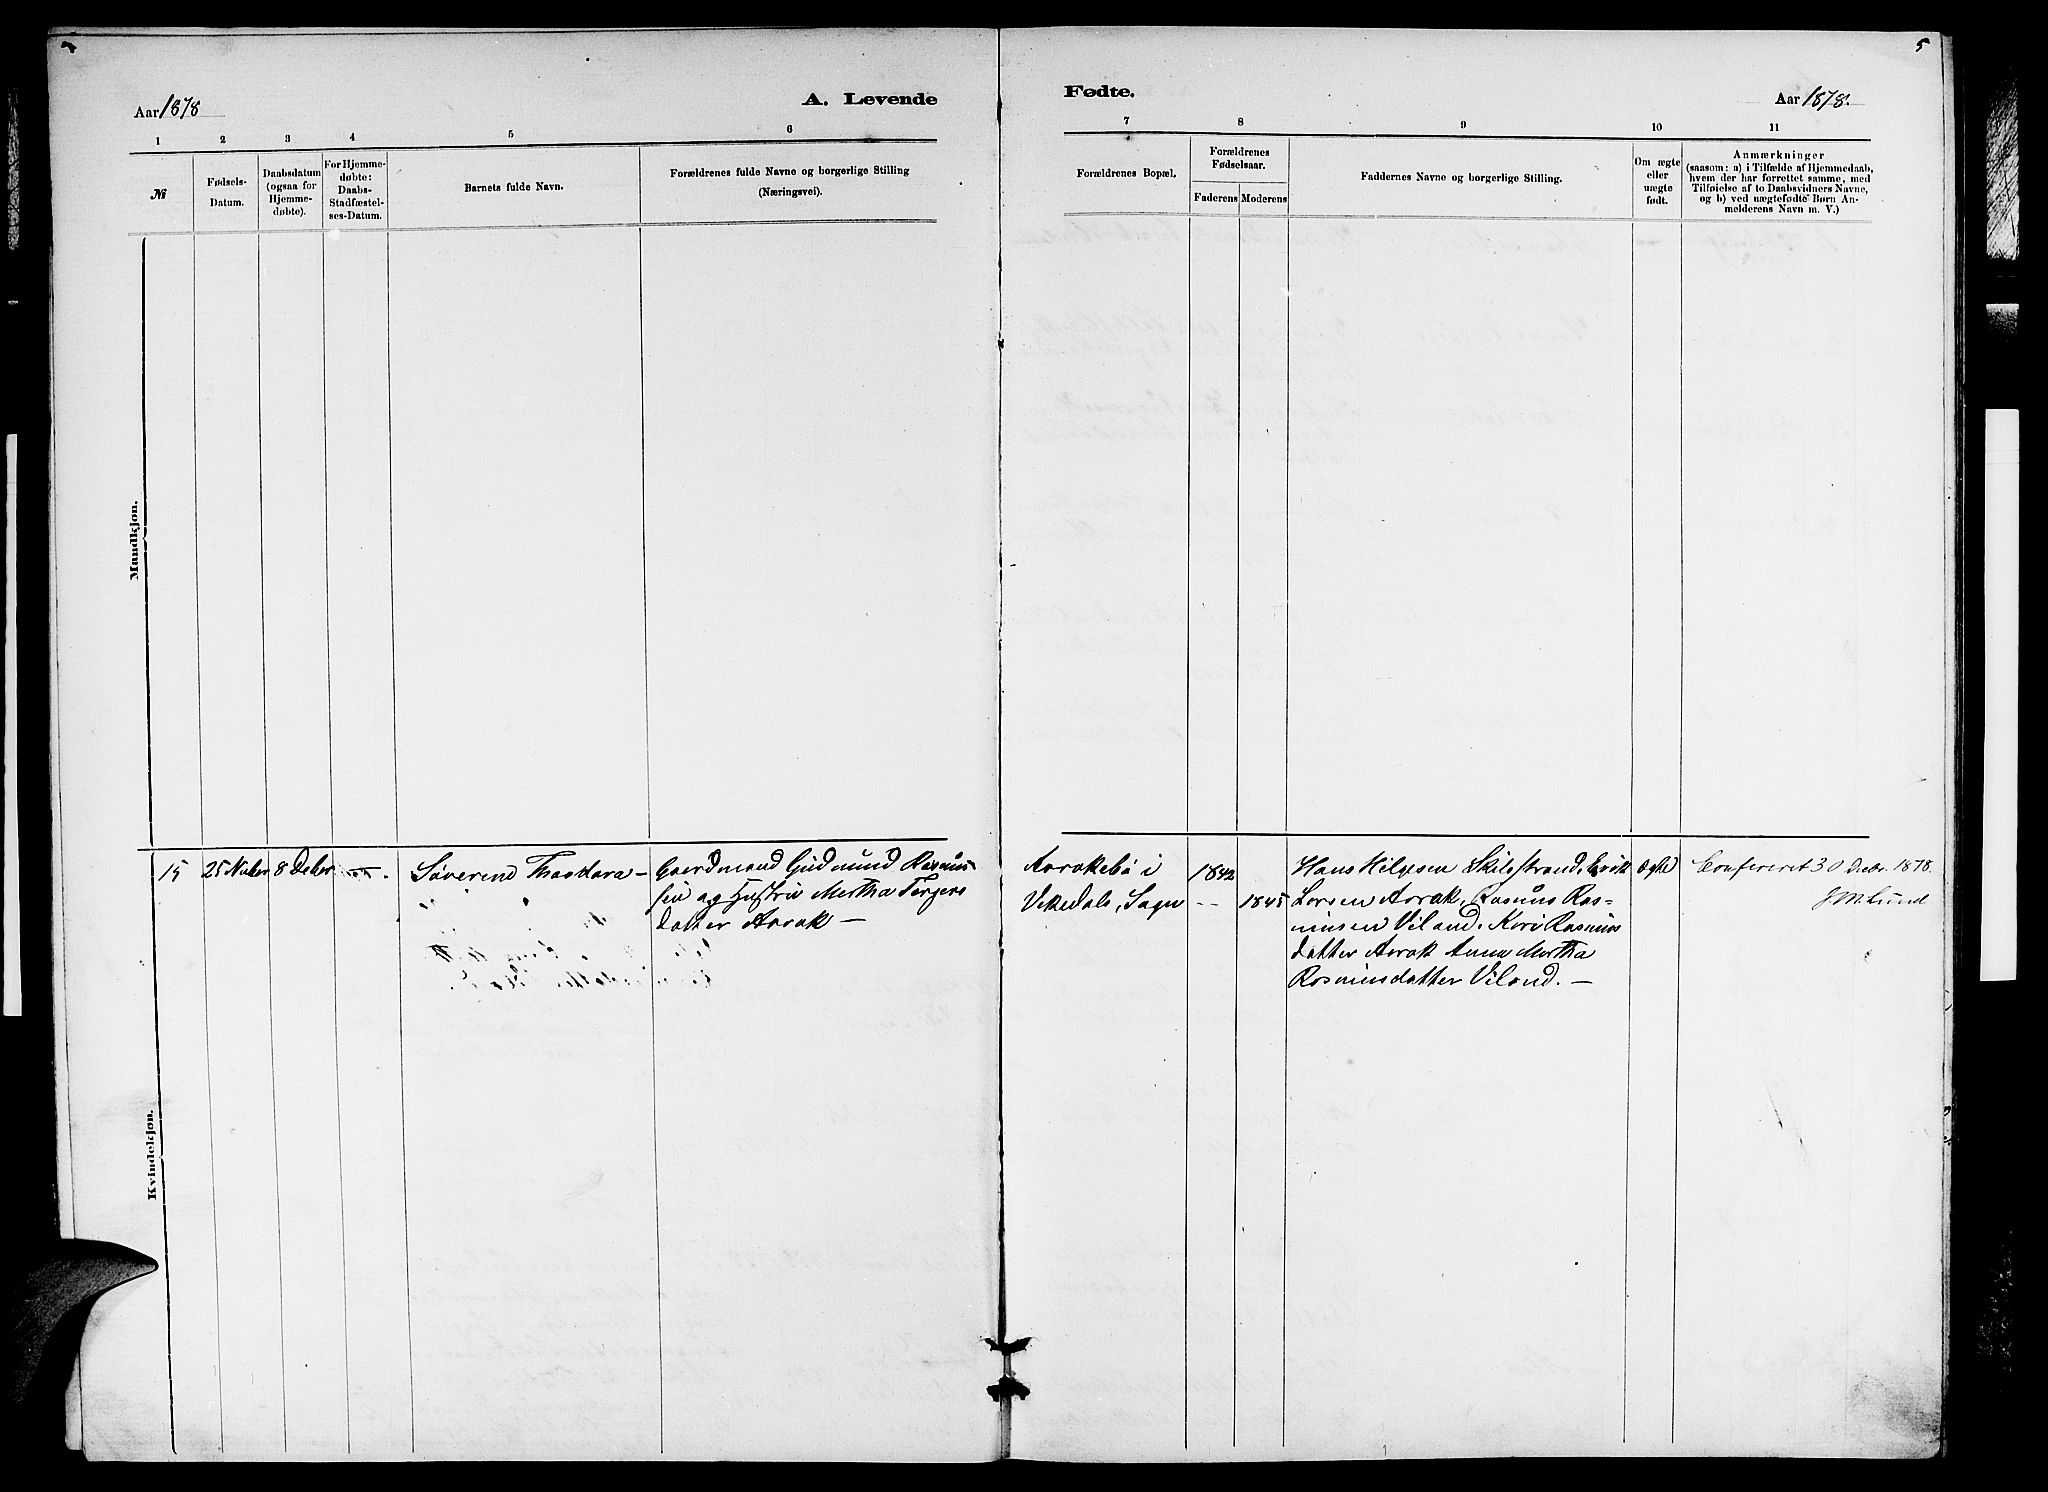 5
Aar 1878
A. Levende
Fødte.
Aar 1878.
1 2 3 4 5 6 7 8 9 10 11
№
Fødsels-
Datum.
Daabsdatum
(ogsaa for
Hjemme-
døbte).
For Hjemme-
døbte:
Daabs-
Stadfæstel-
ses-Datum.
Barnets fulde Navn.
Forældrenes fulde Navne og borgerlige Stilling
(Næringsvei).
Forældrenes Bopæl.
Forældrenes
Fødselsaar.
Faderens
Moderens
Faddernes Navne og borgerlige Stilling.
Om ægte
eller
uægte
født.
Anmærkninger
(saasom: a) i Tilfælde af Hjemmedaab,
hvem der har forrettet samme, med
Tilføielse af to Daabsvidners Navne,
og b) ved uægtefødte Børn An-
melderens Navn m. V.)
Mandkjøn.
Kvindekjøn.
15
25 Nvber
8 Deber
Severine Thoodora -
Gaardmand Gudmund Rasmus-
sen og Hustru Martha Torgers
datter Aarak -
Aarakebø i
Vikedals, Sogn
1842
- - 1845
Hans Helgesen Skilgstrand, Erik
Larsen Aarak, Rasmus Ras-
musen Viland, Kari Rasmus
datter Aarak Anna Martha
Rasmusdatter Viland. -
Ægte
Confereret 30 Decbr. 1878.
J M Lund